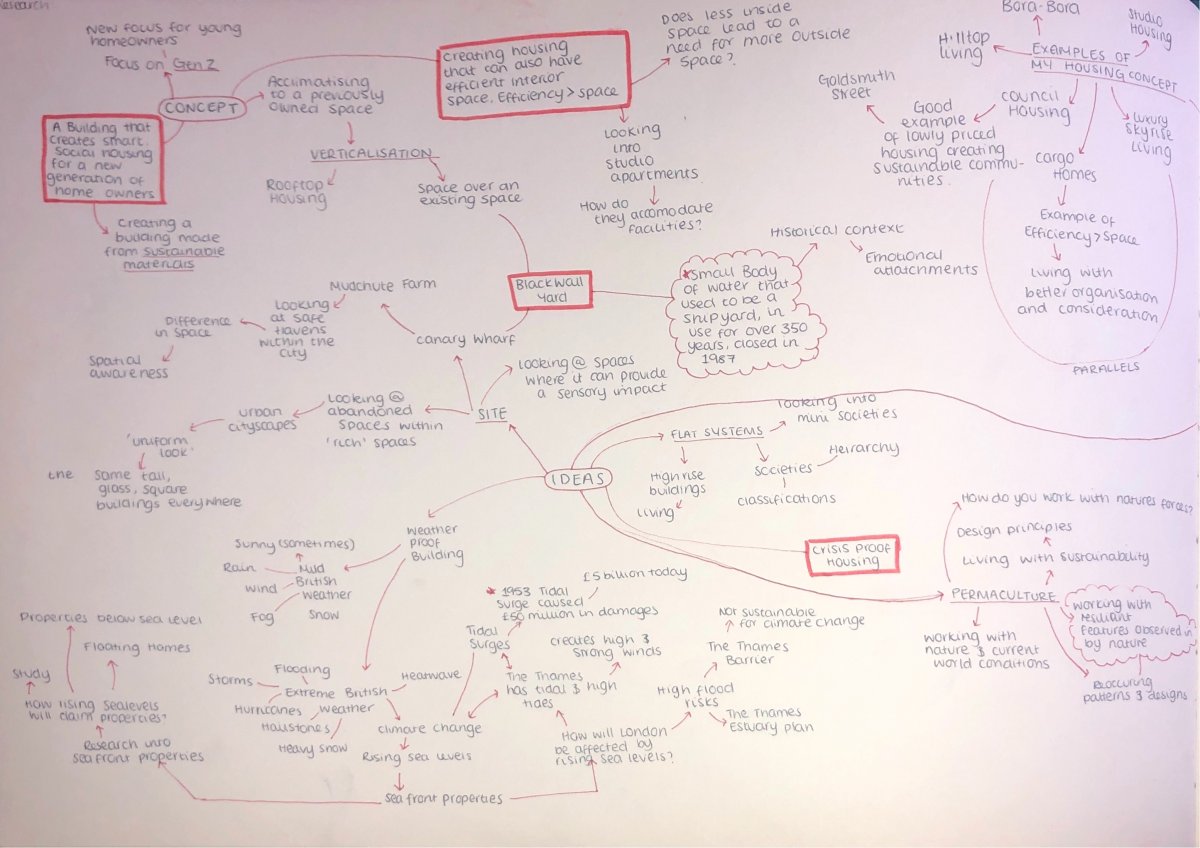 Research
New focus for young
homeowners
Focus on Gen Z
CONCEPT
Acclimatising
to a previously
owned space
A Building that
creates smart
social housing
for a new
generation of
home owners
creating a
building made
from sustainable
materials
VERTICALISATION
Rooftop
Housing
Space over an
existing space
creating housing
that can also have
efficient interior
space, Efficiency > space
Does less inside
space lead to a
need for more outside
space?
Looking
into
studio
apartments
How do
they accomodate
facilities?
Bora-Bora
Studio
Housing
Hilltop
living
EXAMPLES OF
MY HOUSING CONCEPT
Goldsmith
street
council
Housing
Good
example
of lowly priced
housing creating
sustainable commu-
nities.
Luxury
skyrise
living
cargo
Homes
Example of
Efficiency > Space
Living with
better organisation
and consideration
PARALLELS
Blackwall
Yard
*small Body
of water that
used to be a
shipyard, in
use for over 350
years, closed in
1987
Historical context
Emotional
attatchments
Mudchute Farm
Looking
at safe
Havens
within the
city
Difference
in space
Spatial
awareness
canary wharf
Looking @ spaces
where it can provide
a sensory impact
SITE
Looking @
abandoned
spaces within
'rich' spaces
urban
cityscapes
'uniform
look'
the same tall,
glass, square
buildings everywhere
IDEAS
FLAT SYSTEMS
looking into
mini societies
High rise
buildings
living
societies
Heirarchy
classifications
Weather
proof
Building
Sunny (sometimes)
Rain
Mild
British
weather
Wind
Fog
Snow
CRISIS PROOF
HOUSING
How do you work with natures forces?
Design principles
Living with sustainability
PERMACULTURE
working with
resiliant
features observed in
by nature
working with
nature & current
world conditions
Reoccuring
patterns & designs
£5 billion today
* 1953 Tidal
surge caused
£50 million in damages
Tidal
Surges
creates high &
strong winds
The Thames
has tidal & high
tides
Not sustainable
for climate change
The Thames
Barrier
High flood
risks
The Thames
Estuary plan
How will London
be affected by
rising sea levels?
Flooding
Storms
Heatwave
Extreme British
weather
Hurricanes
Hailstones
Heavy snow
climate change
Rising sea levels
sea front properties
Properties below sea level
Floating Homes
Study
How rising sealevels
will claim properties?
Research into
sea front properties